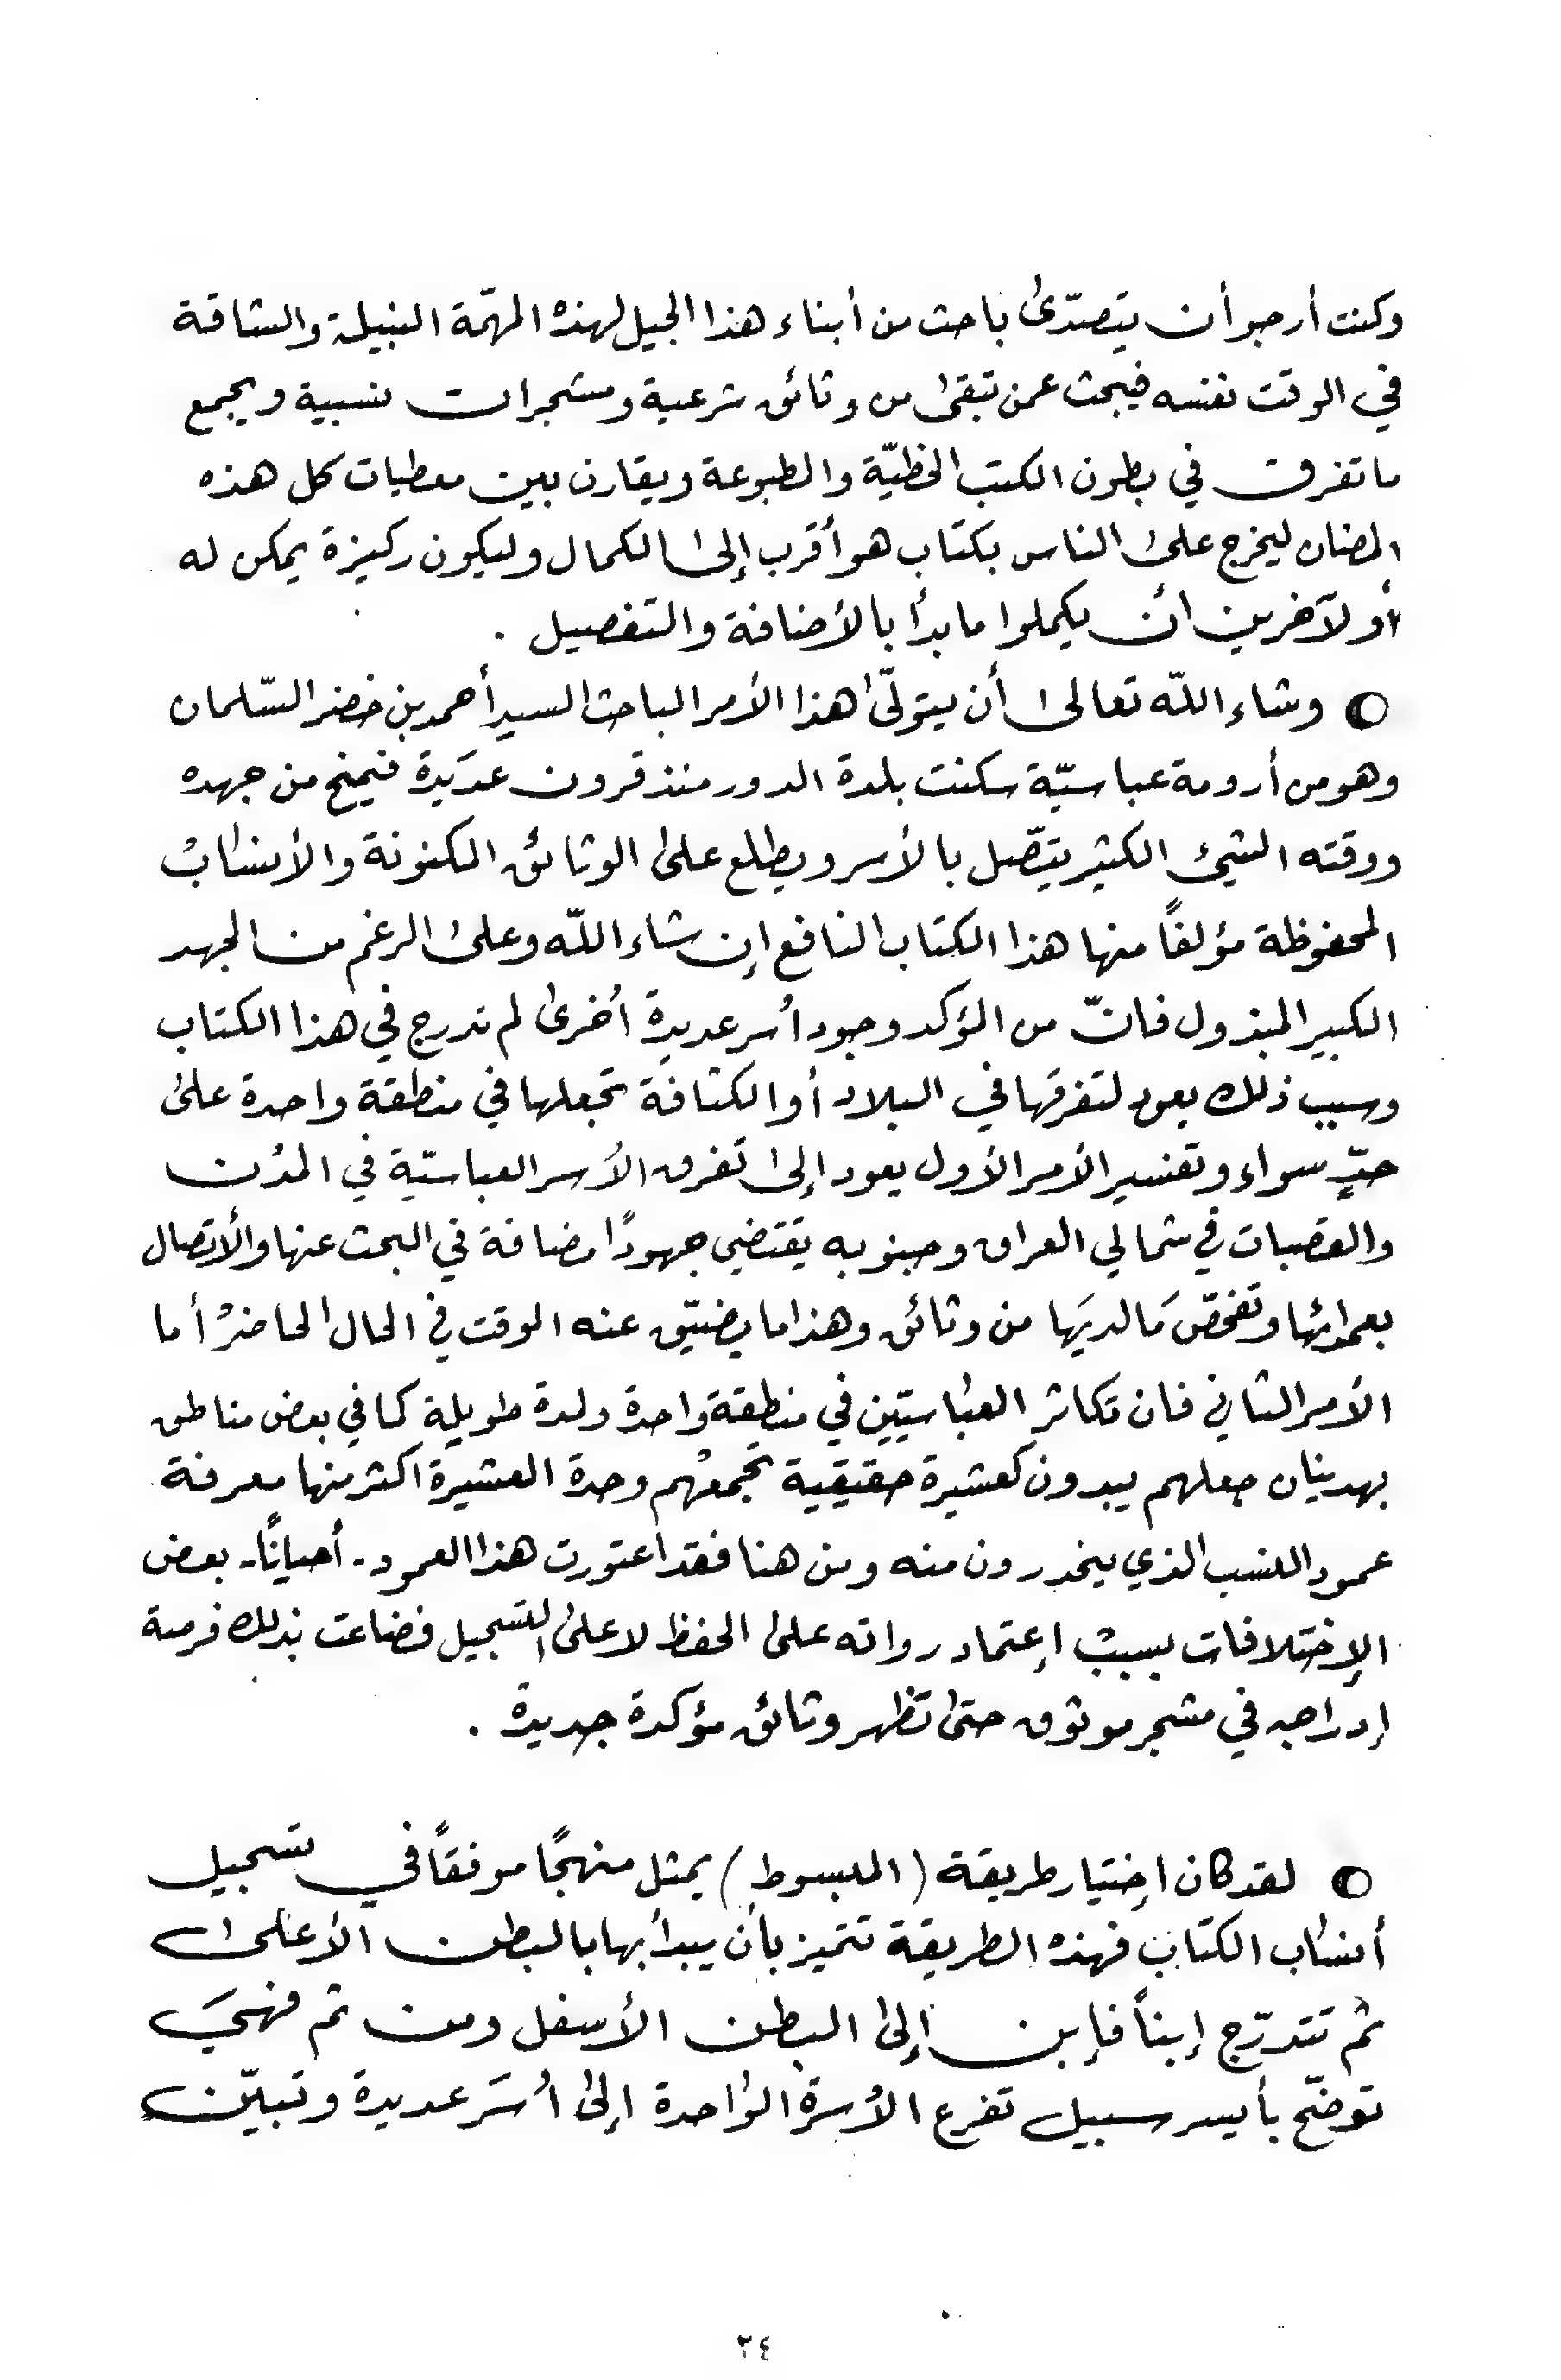 وكنت أرجو أن يتصدّى باحث من أبناء هذا الجيل لهذه المهمّة النبيلة والشاقة
في الوقت نفسه فيبحث عمن تبقى من وثائق شرعية ومشجرات نسبية ويجمع
ما تفرق في بطون الكتب الخطيّة والمطبوعة ويقارن بين معطيات كل هذه
المضان ليخرج على الناس بكتاب هو أقرب إلى الكمال وليكون ركيزة يمكن له
أو لآخرين أن يكملوا ما بدأ بالأضافة والتفصيل .
وشاء اللّه تعالى أن يتولّى هذا الأمر الباحث السيد أحمد بن خضر السّلمان
وهو من أرومة عباسيّة سكنت بلدة الدور منذ قرون عديدة فيمنح من جهده
ووقته الشيئ الكثير يتّصل بالأسر ويطلع على الوثائق المكنونة والأنساب
المحفوظة مؤلفاً منها هذا الكتاب النافع إن شاء اللّه وعلى الرغم من الجهد
الكبير المبذول فانّ من المؤكد وجود أسر عديدة أخرى لم تدرج في هذا الكتاب
وسبب ذلك يعود لتفرقها في البلاد أو الكثافة تجعلها في منطقة واحدة على
حدٍّ سواء وتفسير الأمر الأول يعود إلى تفرق الأسر العباسيّة في المدن
والقصبات في شمالي العراق وجنوبه يقتضي جهودًا مضافة في البحث عنها والأتصال
بعمدائها وتفحّص مَا لديَها من وثائق وهذا ما يضيّق عنه الوقت في الحال الحاضر أما
الأمر الثاني فان تكاثر العباسيّين في منطقة واحدة ولمدة طويلة كما في بعض مناطق
بهدينان جعلهم يبدون كعشيرة حقيقية تجمعهم وحدة العشيرة اكثر منها معرفة
عمود النسب الذي ينحدرون منه ومن هنا فقد اعتورت هذا العمود - أحيانًا - بعض
الإختلافات بسبب إعتماد رواته على الحفظ لا على التسجيل فضاعت بذلك فرصة
إدراجه في مشجر موثوق حتى تظهر وثائق مؤكدة جديدة .
لقد كان اختيار طريقة ( المبسوط ) يمثل منهجًا موفقاً في تسجيل
أنساب الكتاب فهذه الطريقة تتميز بأن يبدأ بها بالبطن الأعلى
ثم تتدرّج إبناً فإبن إلى البطن الأسفل ومن ثم فهيَ
توضّح بأيسر سبيل تفرع الأسرة الواحدة إلى أسَر عديدة وتبيّن
٢٤